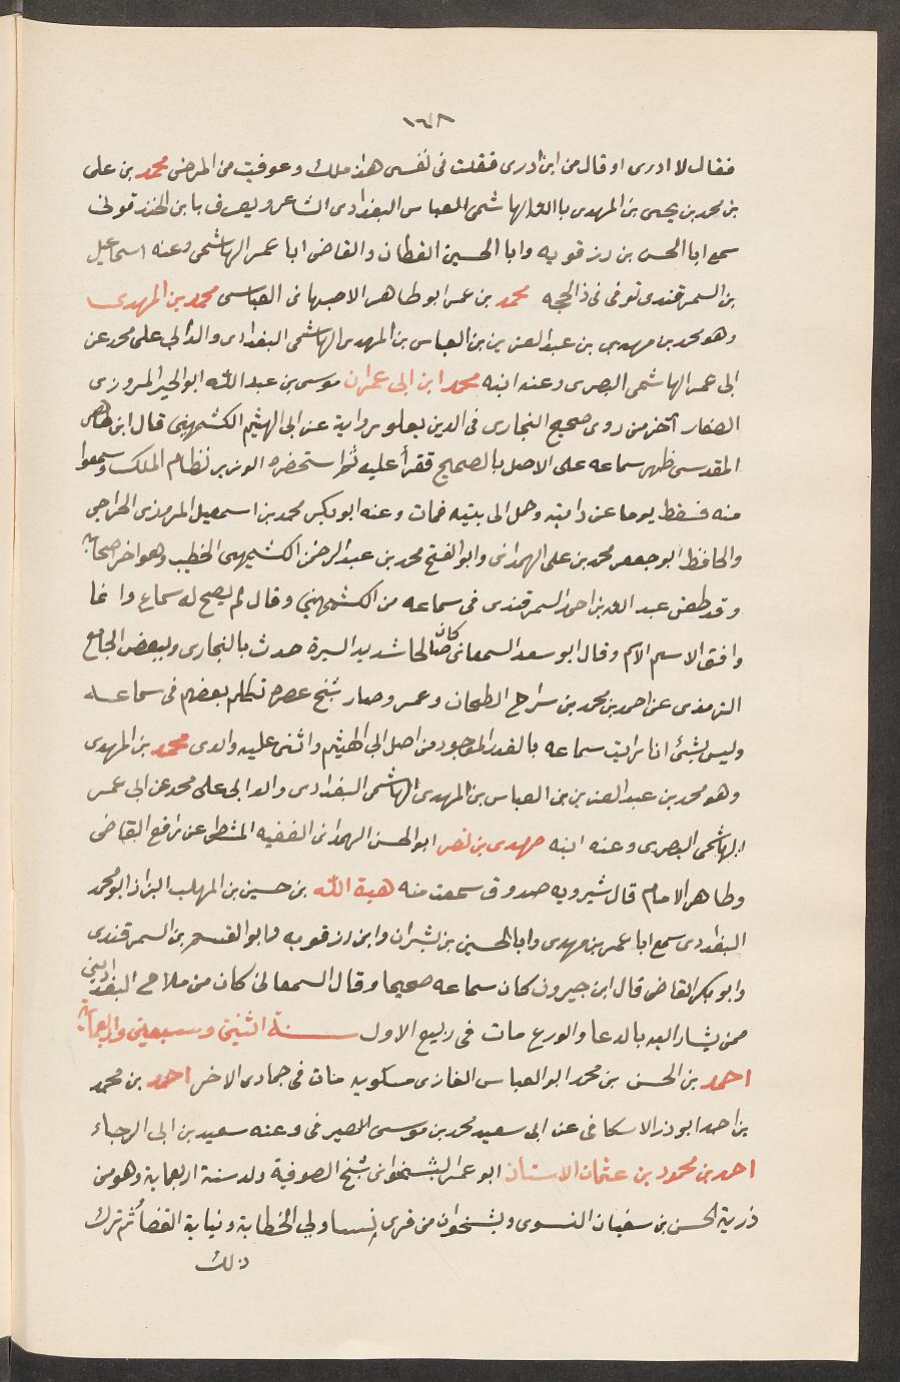 ١٤٨
فقال لا ادرى او قال من اين ادرى فقلت فى نفسى هذا ملك وعوفيت من المرض محمد بن على
بن محمد بن يحيى بن المهدى باالله الهاشمى العباسى البغدادى الشاعر ويعرف بابن الخندقوقى
سمع ابا الحسن بن رزقويه وابا الحسين القطان والقاضى ابا عمر الهاشمى وعنه اسماعيل
بن السمرقندى توفى فى ذالحجه محمد بن عمر ابو طاهر الاصبهانى العباسى محمد بن المهدى
وهو محمد بن مهدى بن عبد العزيز بن العباس بن المهدى الهاشمى البغدادى والد ابى على محمد عن
ابى عمر الهاشمى البصرى وعنه ابنه محمد ابن ابى عمران موسى بن عبد الله ابو الخير المروزى
الصفار آخر من روى صحيح النجارى فى الدين بعلو رواية عن ابى الهيثم الكشميهنى قال ابن طاهر
المقدسى ظهر سماعه على الاصل بالصحيح فقرأ عليه ثم استحضره الوزير نظام الملك وسمعوا
منه فسقط يوما عن دابته وحمل الى بيته فمات وعنه ابو بكر محمد بن اسمعيل المرمذى الخراجى
والحافظ ابو جعفر محمد بن على الهمدانى وابو الفتح محمد بن عبد الرحمن الكشميهنى الخطيب وهو اخر اصحابه
وقد طعن عبد الله بن احمد السمرقندى فى سماعه من الكشميهنى وقال لم يصح له سماع وانما
وافق الاسم الاسم وقال ابو سعد السمعانى كان صالحا شديد السيرة حدث بالنجارى وببعض الجامع
الترمذى عن احمد بن محمد بن سراج الطحان وعمر وصار شيخ عصره تكلم بعضهم فى سماعه
وليس بشئ انا رايت سماعه بالقدر الموجود من اصل ابى الهيثم واثنى عليه والدى محمد بن المهدى
وهو محمد بن عبد العزيز بن العباس بن المهدى الهاشمى البغدادى والد ابى على محمد عن ابى عمر
الهاشمى البصرى وعنه ابنه مهدى بن نصر ابو الحسن الهمدانى الفقيه المشطى عن رافع القاضى
وطاهر الامام قال شيرويه صدوق سمعت منه هبة الله بن حسين بن المهلب البزاز ابو محمد
البغدادى سمع ابا عمر بن مهدى وابا الحسين بن بشران وابن رزقويه وابو القسم بن السمرقندى
وابو بكر القاضى قال ابن جيرون كان سماعه صحيحا وقال السمعانى كان من ملاحى البغداديين
ممن يشار اليه بالدعا والورع مات فى ربيع الاول سنة اثنين وسبعين واربعمائة
احمد بن الحسن بن محمد ابو العباس الغازى مسكويه مات فى جمادى الاخر احمد بن محمد
بن احمد ابو ذر الاسكافى عن ابى سعيد محمد بن موسى الصيرفى وعنه سعيد بن ابى الرجاء
احمد بن محمود بن عثمان الاستاذ ابو عمر البشخوانى شيخ الصوفية ولد سنة اربعماية وهو من
ذرية الحسن بن سفيان النسوى وبشخوان من قرى نسا ولى الخطابة ونيابة القضا ثم ترك
ذلك